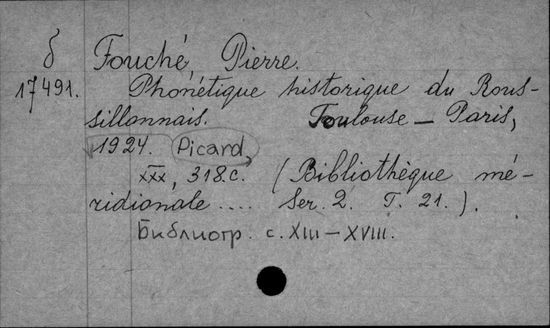 б Fouché, Pierre.
17491. Phonétique historique du Rous-
sillannais. Toulouse – Paris,
1924. Picard,
XXX, 318 с. (Bibliothèque mé-
ridionale .... Ser. 2. T. 21.).
Библиогр. с. XIII – XVIII.